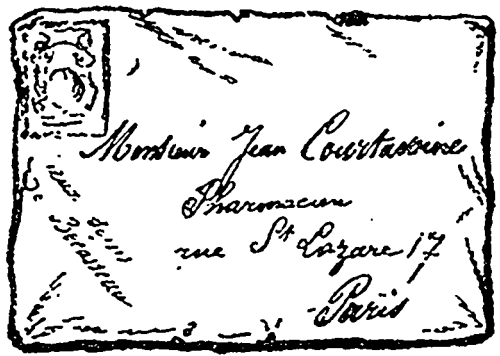 Monsieur Jean Courtavoine
Pharmacien
rue St Lazare 17
Paris